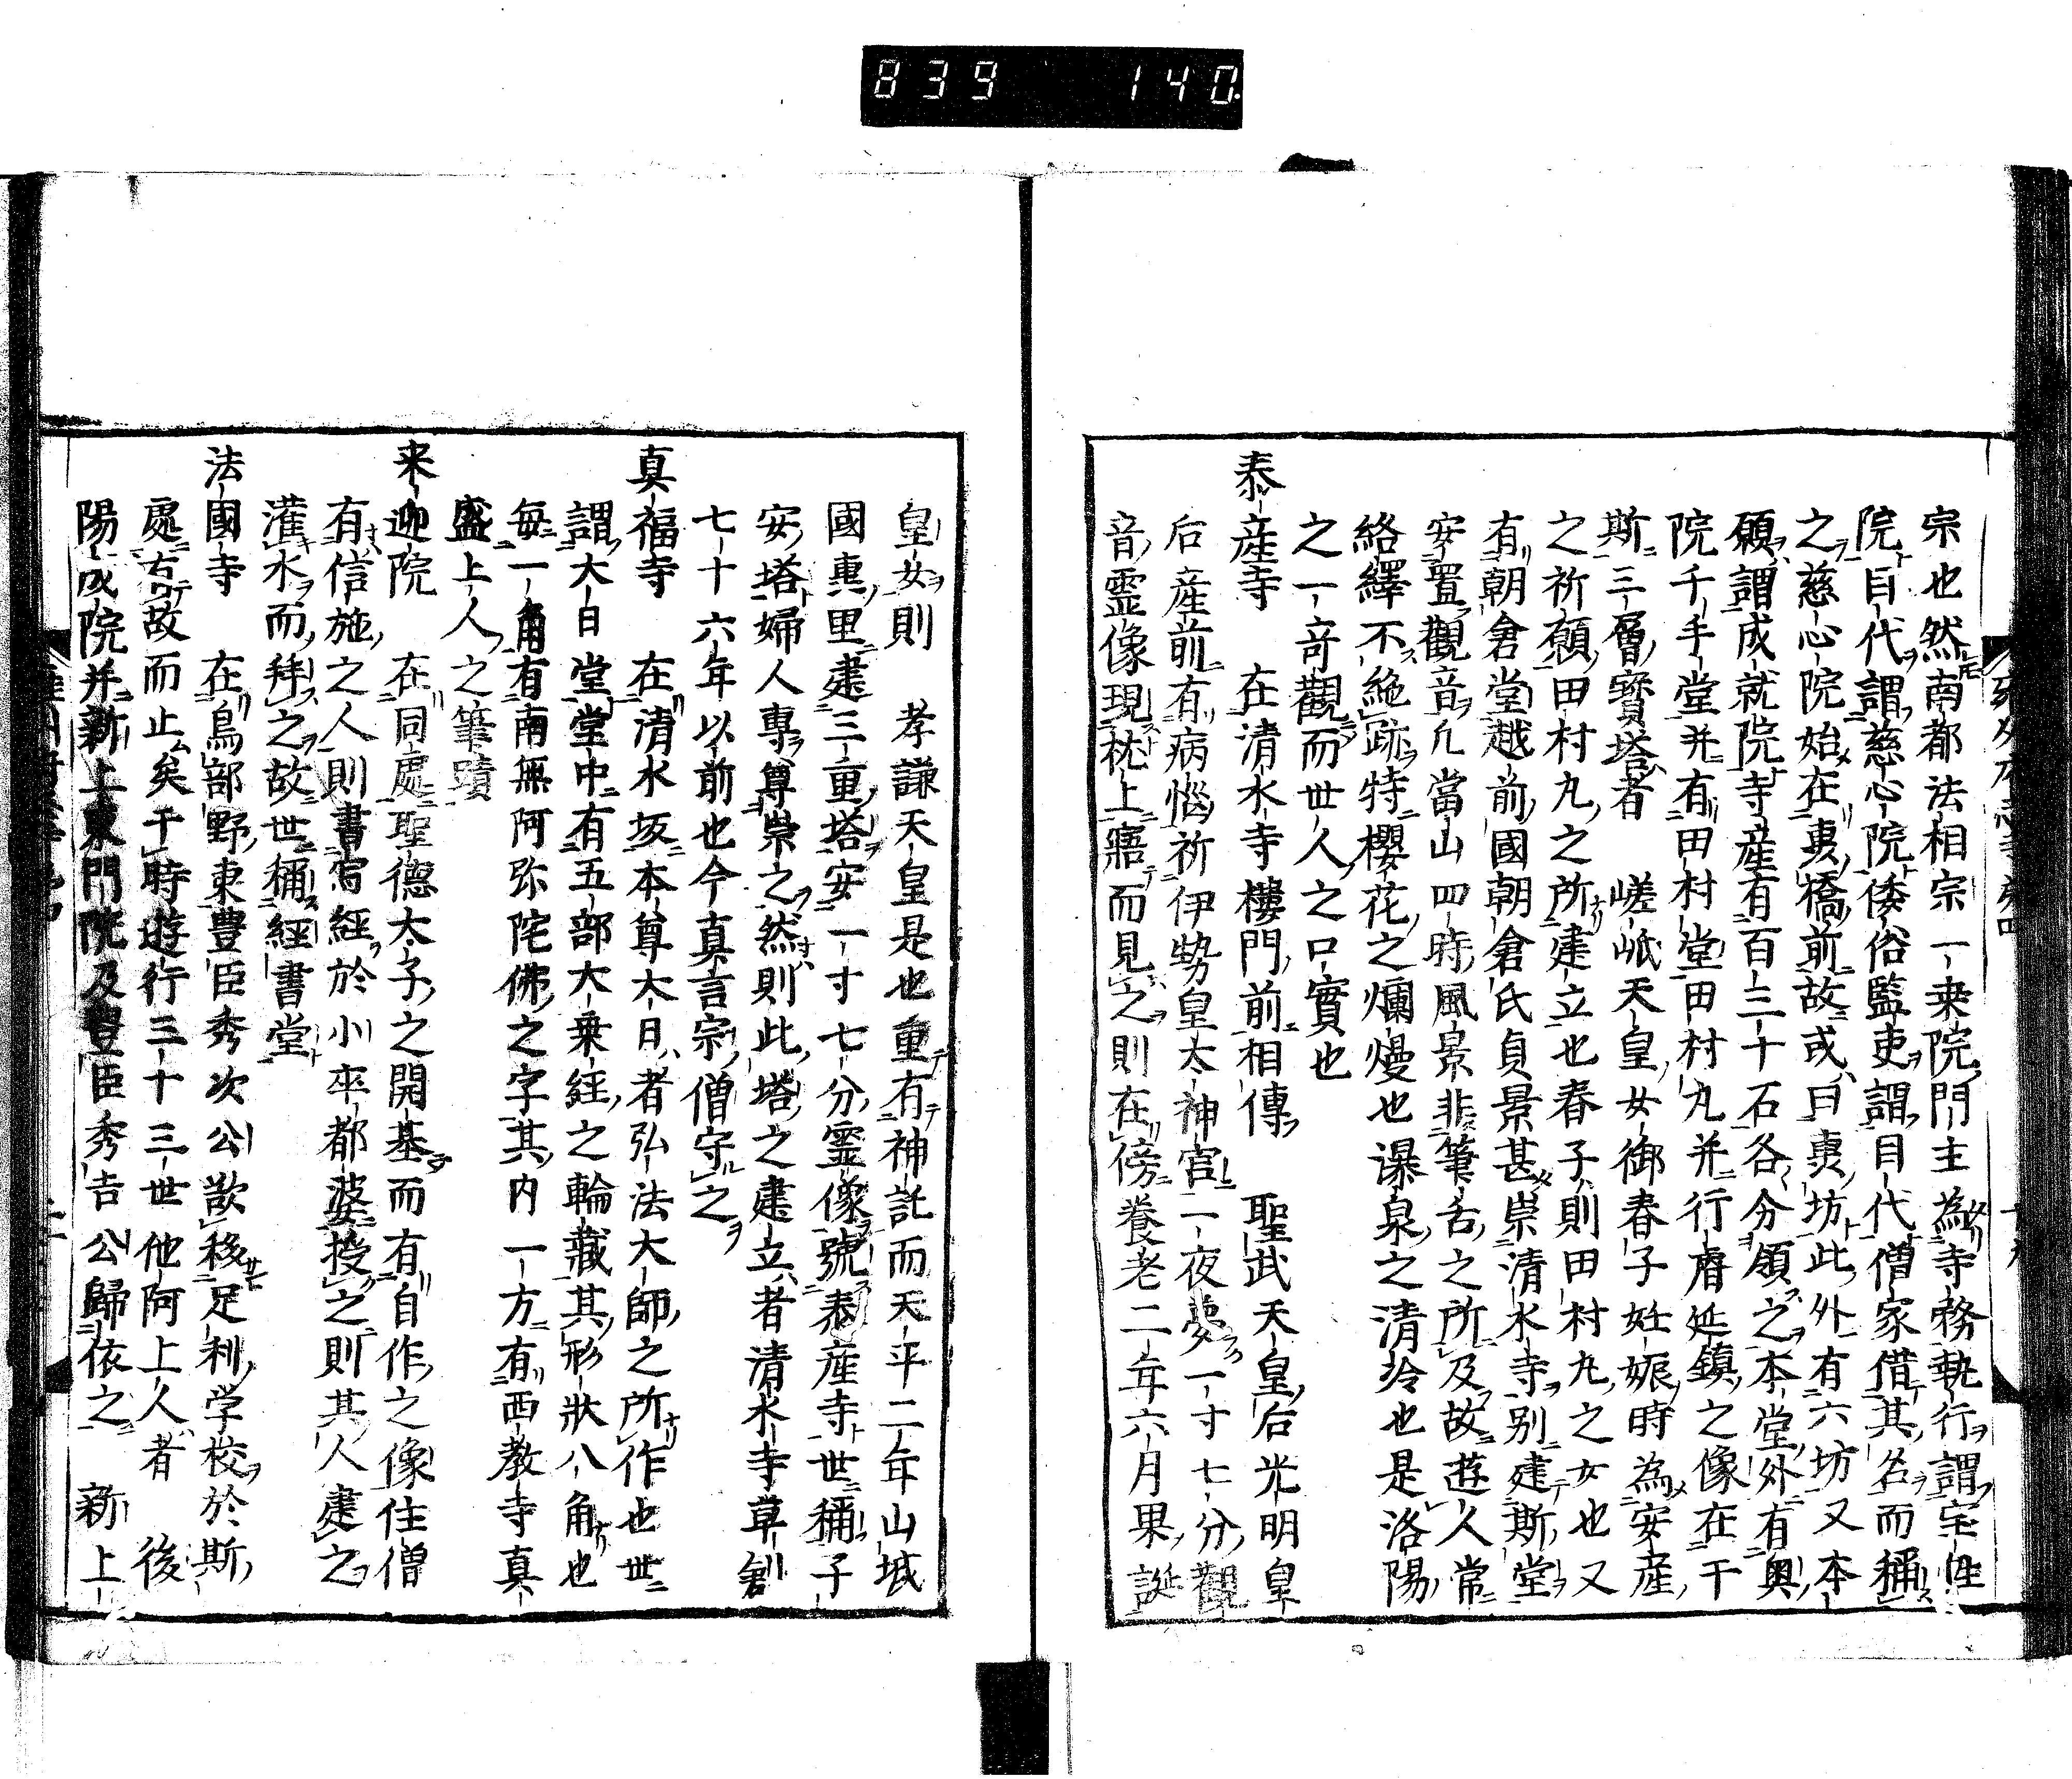 839 140
宗也然南都法相宗一来院門主為寺務執行謂宝性
院目代謂慈心院倭俗監吏謂目代僧家借其名而稱
之慈心院始在輿橋前故或曰輿坊此外有六坊又本
願謂成就院寺産有百三十石各分領之本堂外有奥
院千手堂并有田村堂田村丸并行睿延鎮之像在干
斯三層寳塔者 嵯峨天皇女御春子妊娠時為安産
之祈願田村丸之所建立也春子則田村丸之女也又
有朝倉堂越前國朝倉氏貞景甚崇清水寺别建斯堂
安置觀音凢當山四時風景非筆舌之所及故遊人常
絡繹不絶跡特櫻花之爛熳也瀑泉之清泠也是洛陽
之一奇觀而世人之口實也
泰産寺 在清水寺樓門前相傳 聖武天皇后光明皇
后産前有病惱祈伊勢皇太神宮二夜夢一寸七分觀
音霊像現枕上寤而見之則在傍養老二年六月果誕
皇女則 孝謙天皇是也重有神託而天平二年山城
國輿里建三重塔安一寸七分霊像號泰産寺世稱子
安塔婦人專尊崇之然則此塔之建立者清水寺草創
七十六年以前也今真言宗僧守之
真福寺 在清水坂本尊大日者弘法大師之所作也世
謂大日堂堂中有五部大乗経之輪藏其形狀八角也
毎一角有南無阿弥陀佛之字其内一方有西教寺真
盛上人之筆蹟
来迎院 在同處聖德太子之開基而有自作之像住僧
有信施之人則書写経於小卒都婆授之則其人建之
灌水而拜之故世稱経書堂
法國寺 在鳥部野東豊臣秀次公欲移足利学校於斯
處有故而止矣干時遊行三十三世他阿上人者 後
陽成院并新上東門院及豊臣秀吉公歸依之 新上